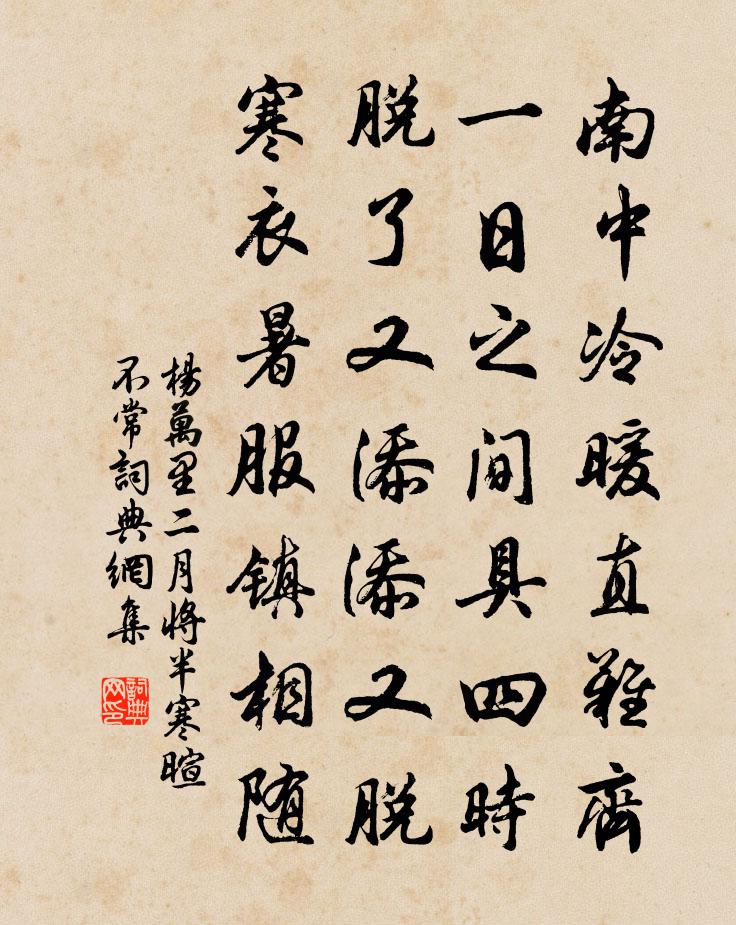 南中冷暖直難齊
一日之间具四時
脱了又添添又脱
寒衣暑服镇相随
楊萬里二月將半寒暄
不常詞典網集
詞典
网印